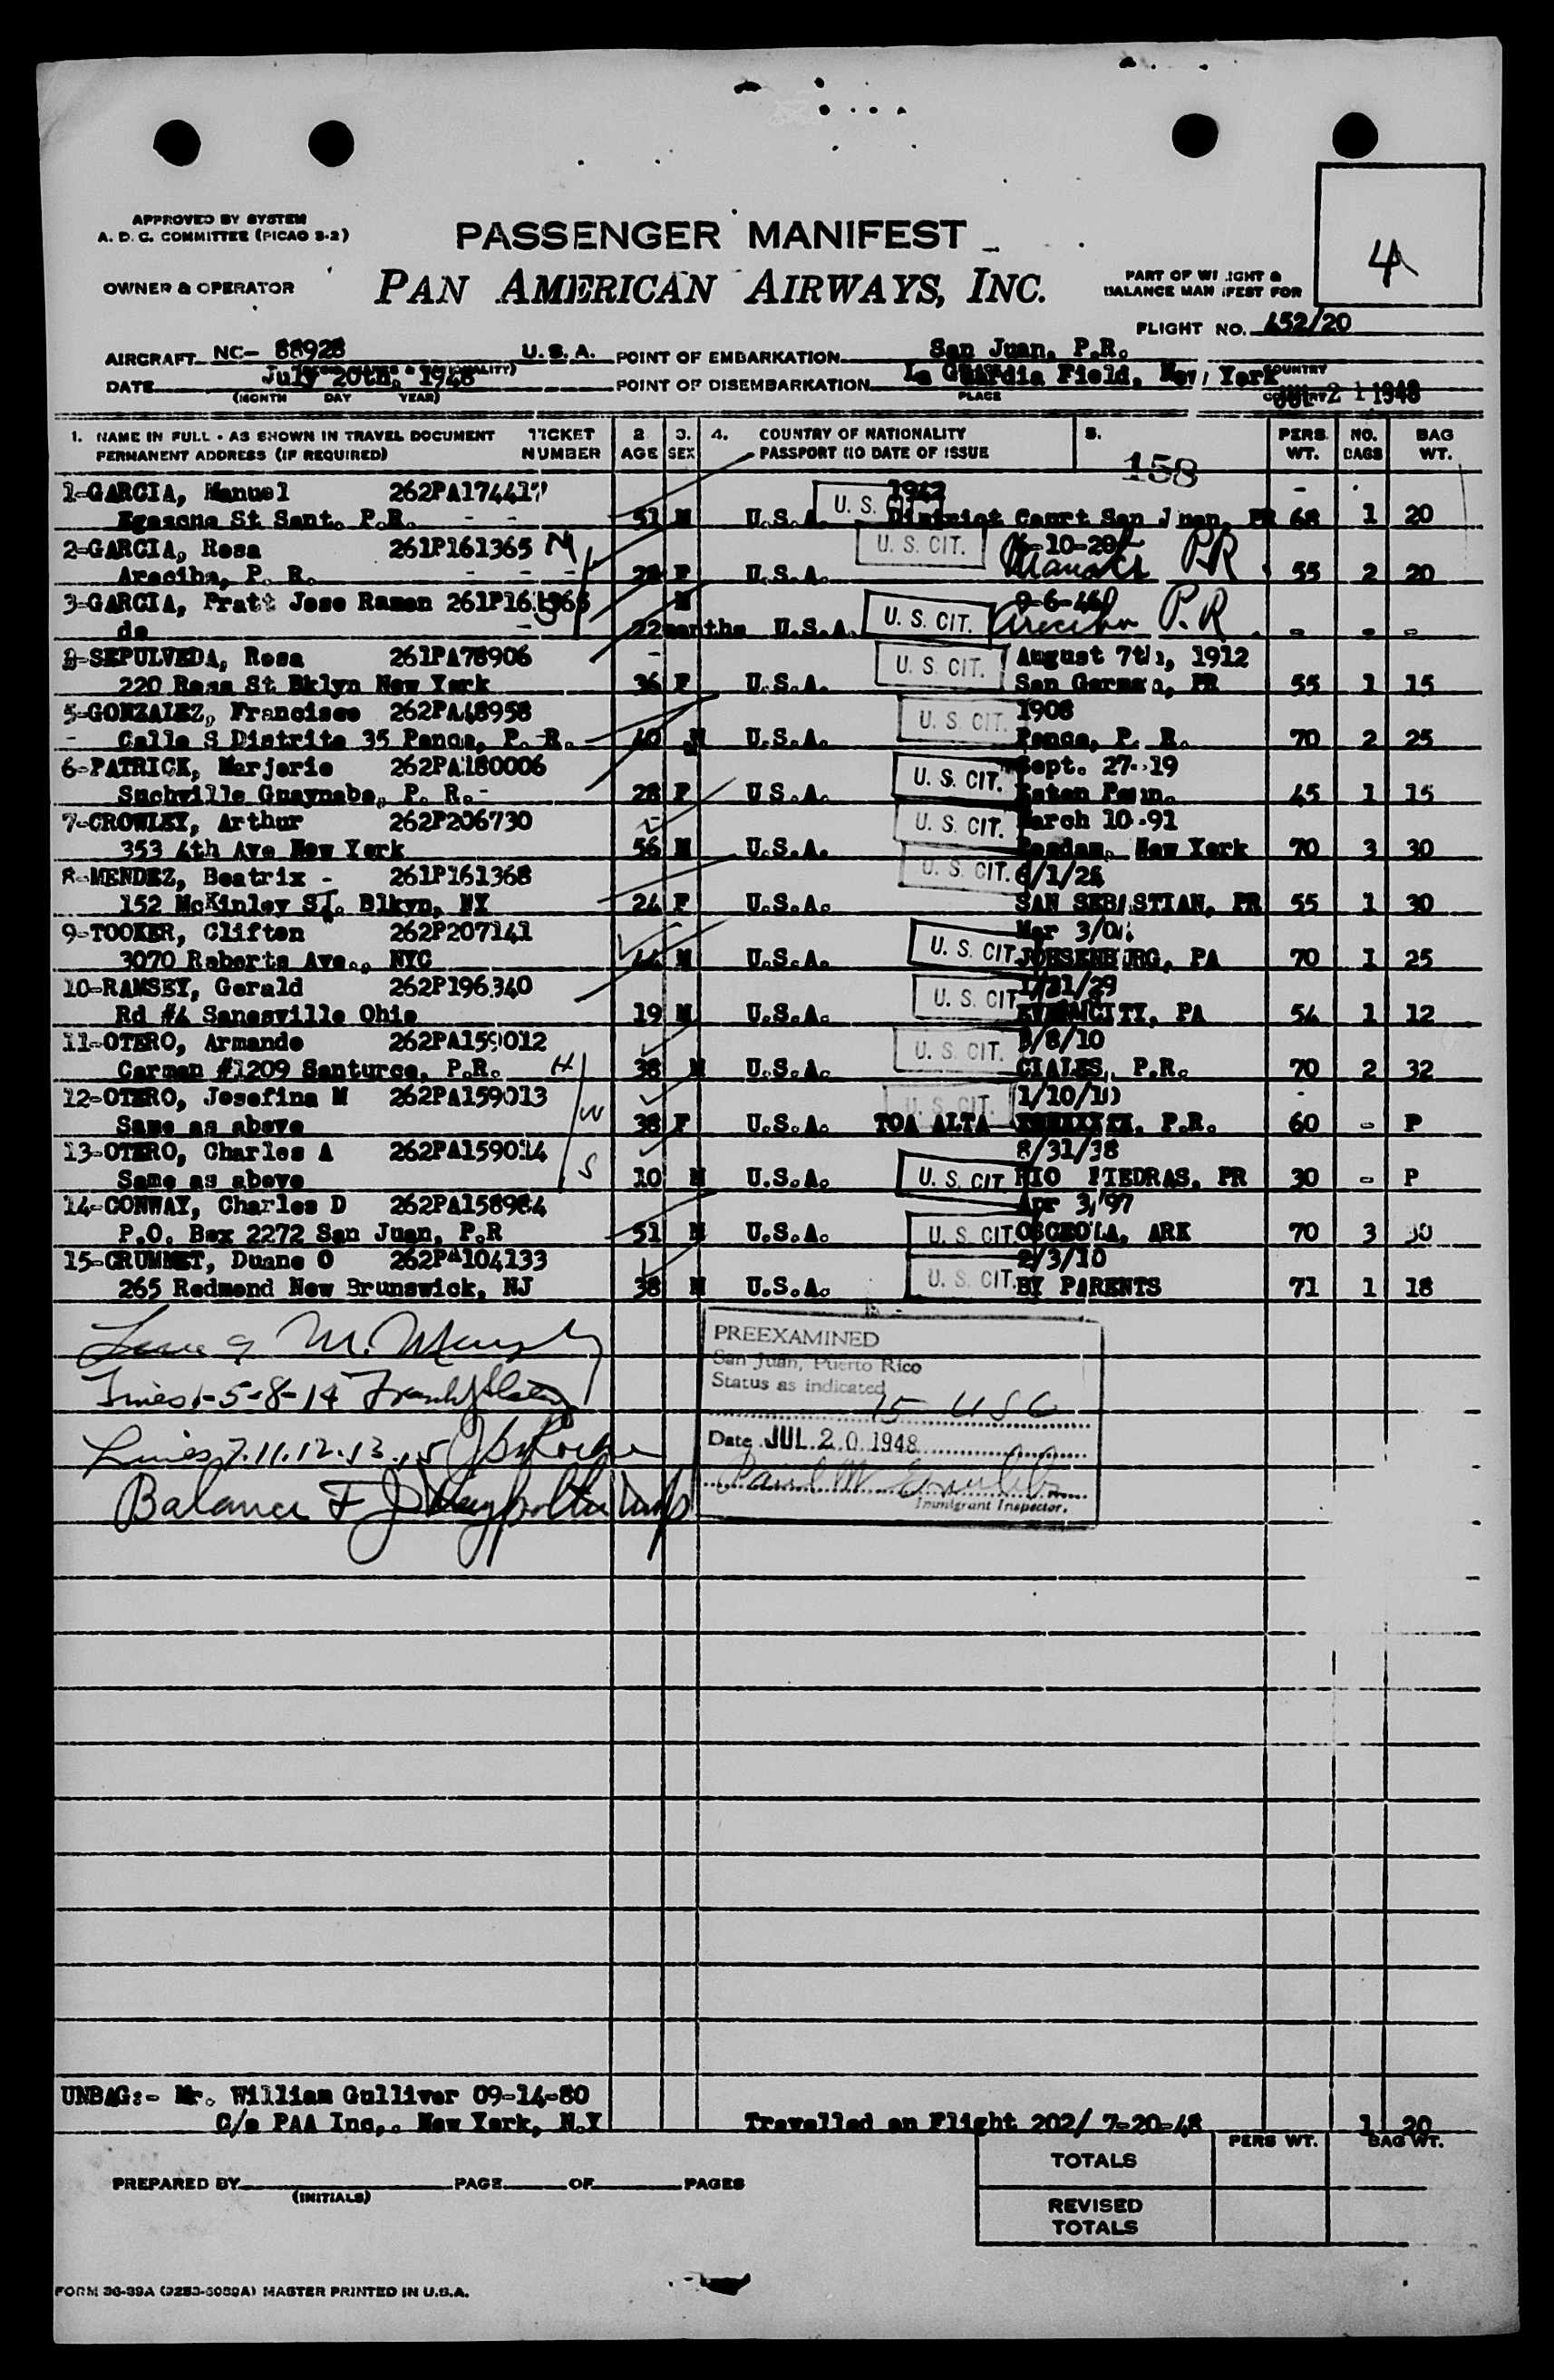 APPROVED BY SYSTEM
A. D. C. COMMITTEE (PICAO 3-2)
PASSENGER MANIFEST
4
OWNER & OPERATOR
PAN AMERICAN AIRWAYS, INC.
PART OF WEIGHT &
BALANCE MANIFEST FOR
FLIGHT NO. 452/20
AIRCRAFT NC- 88928 U.S.A. POINT OF EMBARKATION San Juan, P.R.
DATE July 20th, 1948 POINT OF DISEMBARKATION La Guardia Field, New York
(MONTH DAY YEAR) PLACE COUNTRY
JUL 21 1948
1. NAME IN FULL - AS SHOWN IN TRAVEL DOCUMENT TICKET 2 3. 4. COUNTRY OF NATIONALITY 5. PERS. NO. BAG
PERMANENT ADDRESS (IF REQUIRED) NUMBER AGE SEX PASSPORT NO DATE OF ISSUE WT. BAGS WT.
158
1-GARCIA, Manuel 262PA174417 U. S. 1942
St Sant. P.R. 51 M U.S.A. District Court San Juan, PR 68 1 20
2-GARCIA, Rosa 261P161365 M U. S. CIT.
Areciba, P. R. 28 F U.S.A. Manati PR 55 2 20
3-GARCIA, Pratt Jose Ramon M
do 22 months U.S.A. U. S. CIT. Arecibo P.R - - -
SEPULVEDA, Rosa 261PA78906 U. S. CIT. August 7th, 1912
220 Ross St Bklyn New York 36 F U.S.A. San German, PR 55 1 15
5-GONZALEZ, Francisco 262PA48958 U. S. CIT. 1908
Calle S Distrito 35 Ponce, P. R. 40 M U.S.A. Ponce, P. R. 70 2 25
6-PATRICK, Marjorie 262PA180006 U. S. CIT. Sept. 27-19
Suchville Guaynabo, P. R. 28 F U.S.A. 45 1 15
7-CROWLEY, Arthur 262P206730 U. S. CIT. March 10-91
353 4th Ave New York 56 M U.S.A. New York 70 3 30
8-MENDEZ, Beatrix - 261P161368 U. S. CIT. 6/1/24
152 McKinley ST. Blkyn, NY 24 F U.S.A. SAN SEBASTIAN, PR 55 1 30
9-TOOKER, Clifton 262P207141 U. S. CIT. Mar 3/04
3070 Roberts Ave., NYC 44 M U.S.A. PA 70 1 25
10-RAMSEY, Gerald 262P196340 U. S. CIT /29
Rd #4 Sanesville Ohio 19 M U.S.A. CITY, PA 54 1 12
11-OTERO, Armando 262PA159012 U. S. CIT. 8/10
Carmen #1209 Santurce, P.R. H 38 M U.S.A. CIALES, P.R. 70 2 32
12-OTERO, Josefina M 262PA159013 U. S. CIT. 1/10/10
Same as above W 38 F U.S.A. TOA ALTA P.R. 60 - P
13-OTERO, Charles A 262PA159014 8/31/38
Same as above S 10 M U.S.A. U. S. CIT. RIO PIEDRAS, PR 30 - P
14-CONWAY, Charles D 262PA158984 Apr 3/97
P.O. Box 2272 San Juan, P.R 51 M U.S.A. U. S. CIT. OSCEOLA, ARK 70 3 30
15-GRUMMET, Duane O 262PA104133 2/3/10
265 Redmond New Brunswick, NJ 38 M U.S.A. U. S. CIT. BY PARENTS 71 1 18
PREEXAMINED
San Juan, Puerto Rico
Status as indicated
15 USC
Lines 1-5-8-14
Lines 7.11.12.13.15
Date JUL 20 1948
Paul M
Balance
Immigrant Inspector.
UNBAG:- Mr. William Gulliver 09-14-80
C/o PAA Inc,. New York, N.Y Travelled on Flight 202/ 7-20-48 1 20
PERS WT. BAG WT.
TOTALS
PREPARED BY PAGE OF PAGES
(INITIALS)
REVISED
TOTALS
FORM 36-39A (9283-6089A) MASTER PRINTED IN U.S.A.